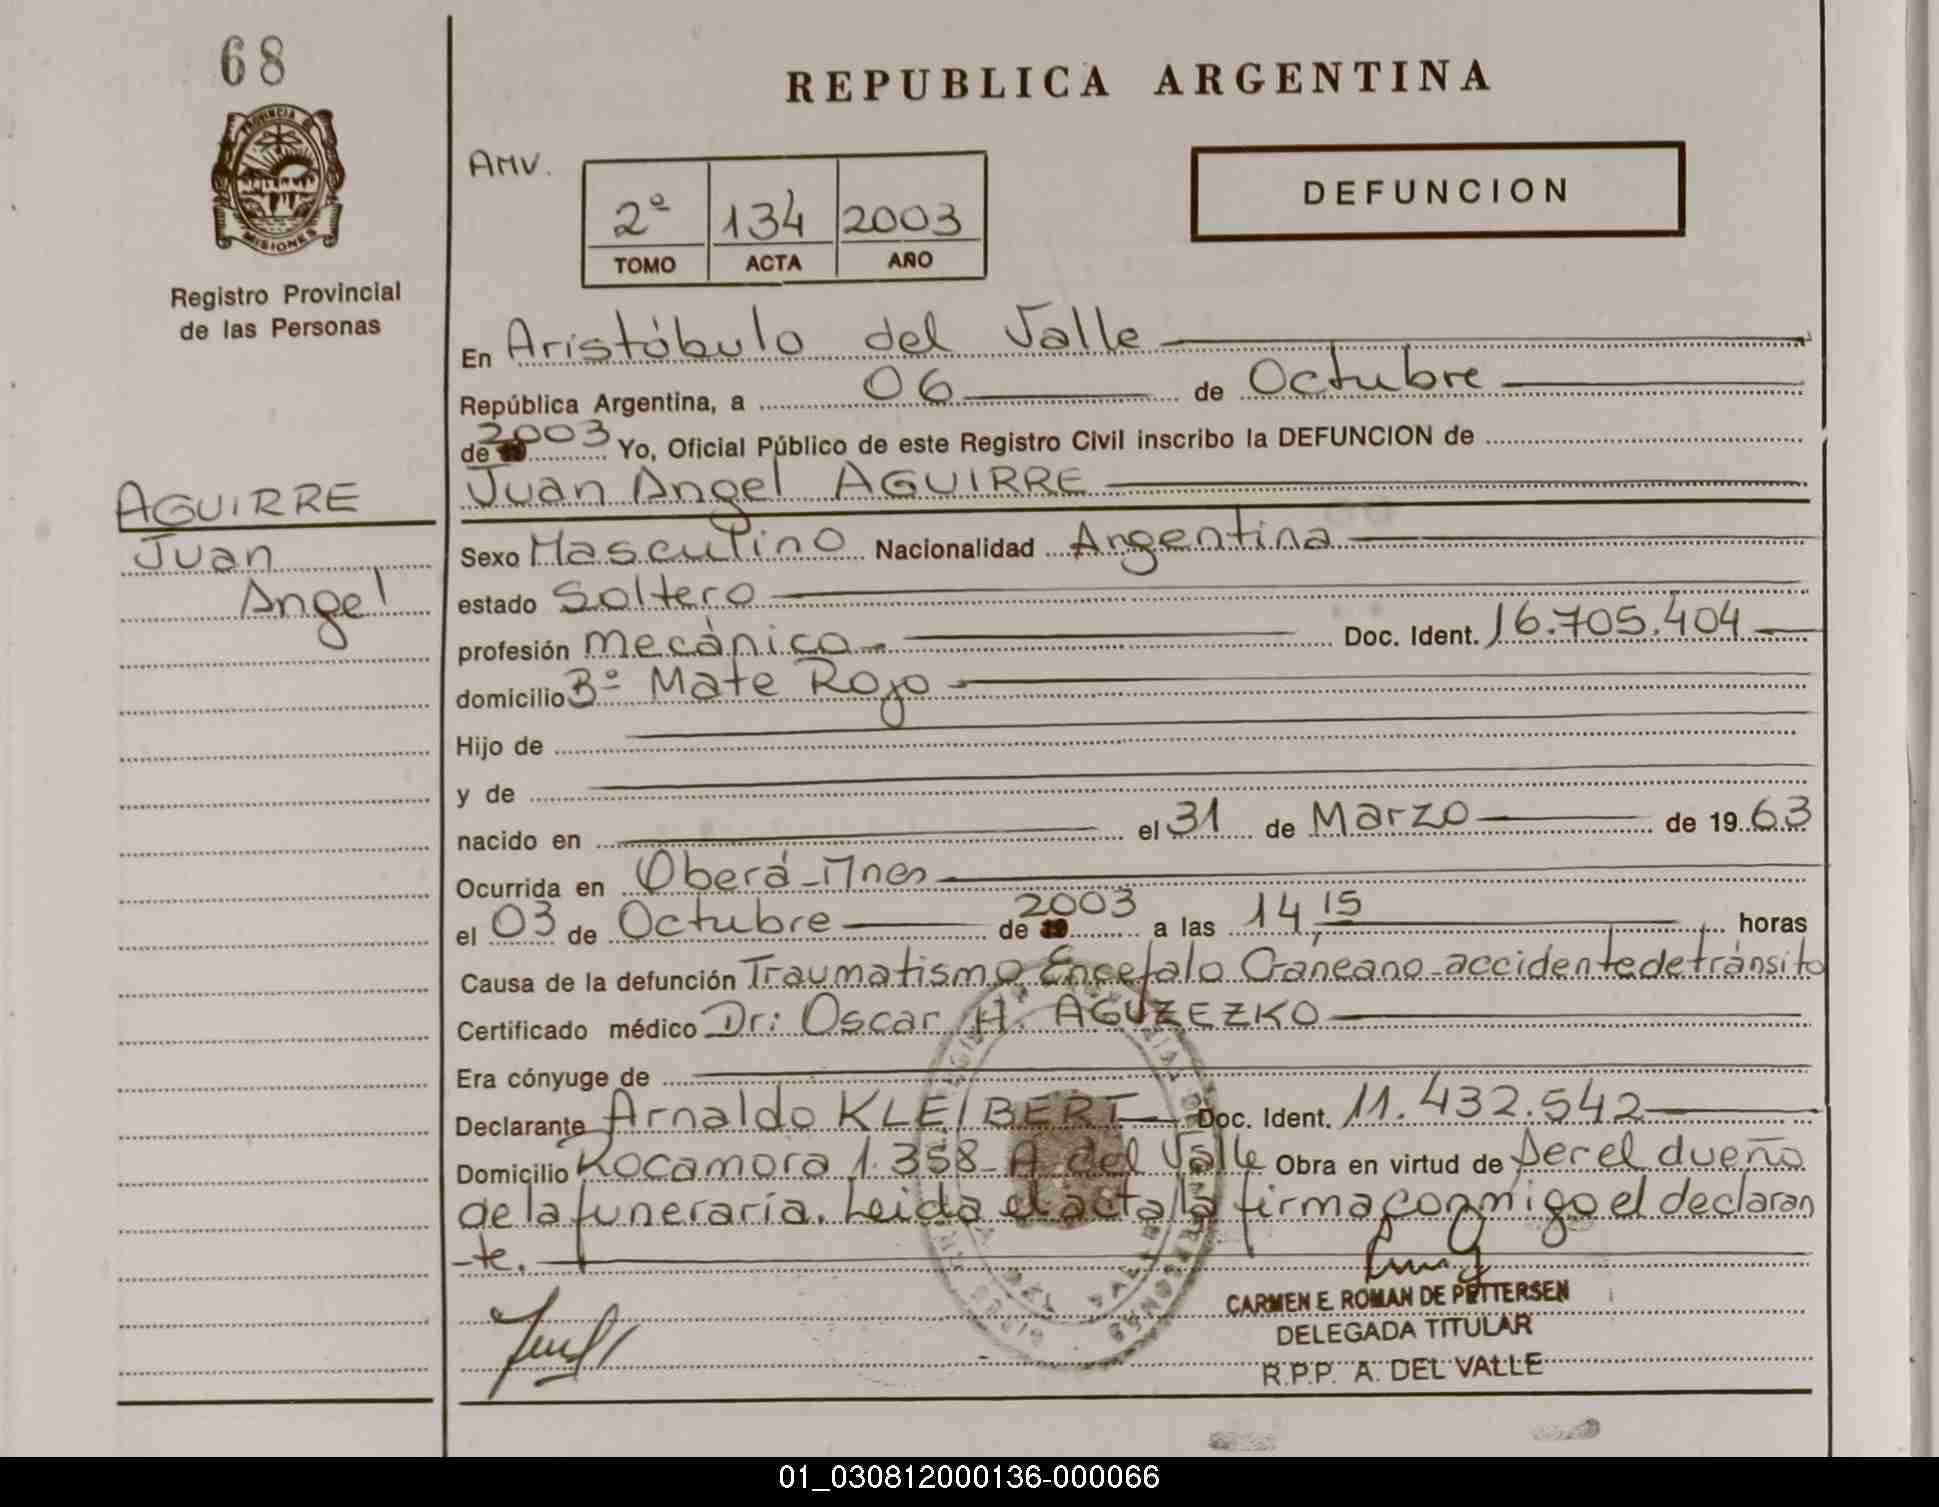 68
REPUBLICA ARGENTINA
PROVINCIA DE
MISIONES
Registro Provincial
de las Personas
AMV.
2º 134 2003
TOMO ACTA AÑO
DEFUNCION
En Aristóbulo del Valle
República Argentina, a 06 de Octubre
de 2003 Yo, Oficial Público de este Registro Civil inscribo la DEFUNCION de
Juan Angel AGUIRRE
AGUIRRE
Juan
Angel
Sexo Masculino Nacionalidad Argentina
estado Soltero
profesión mecánico Doc. Ident. 16.705.404
domicilio Bº Mate Rojo
Hijo de
y de
nacido en el 31 de Marzo de 1963
Ocurrida en Oberá-Mnes
el 03 de Octubre de 2003 a las 14,15 horas
Causa de la defunción Traumatismo Encefalo Craneano-accidente de tránsito
Certificado médico Dr: Oscar H. AGUZEZKO
Era cónyuge de
Declarante Arnaldo KLEIBERT Doc. Ident. 11.432.542
Domicilio Rocamora 1.358-A del Valle Obra en virtud de ser el dueño
de la funeraría. Leida el acta la firma conmigo el declaran
-te.
CARMEN E. ROMAN DE PETTERSEN
DELEGADA TITULAR
R.P.P. A. DEL VALLE
01_030812000136-000066